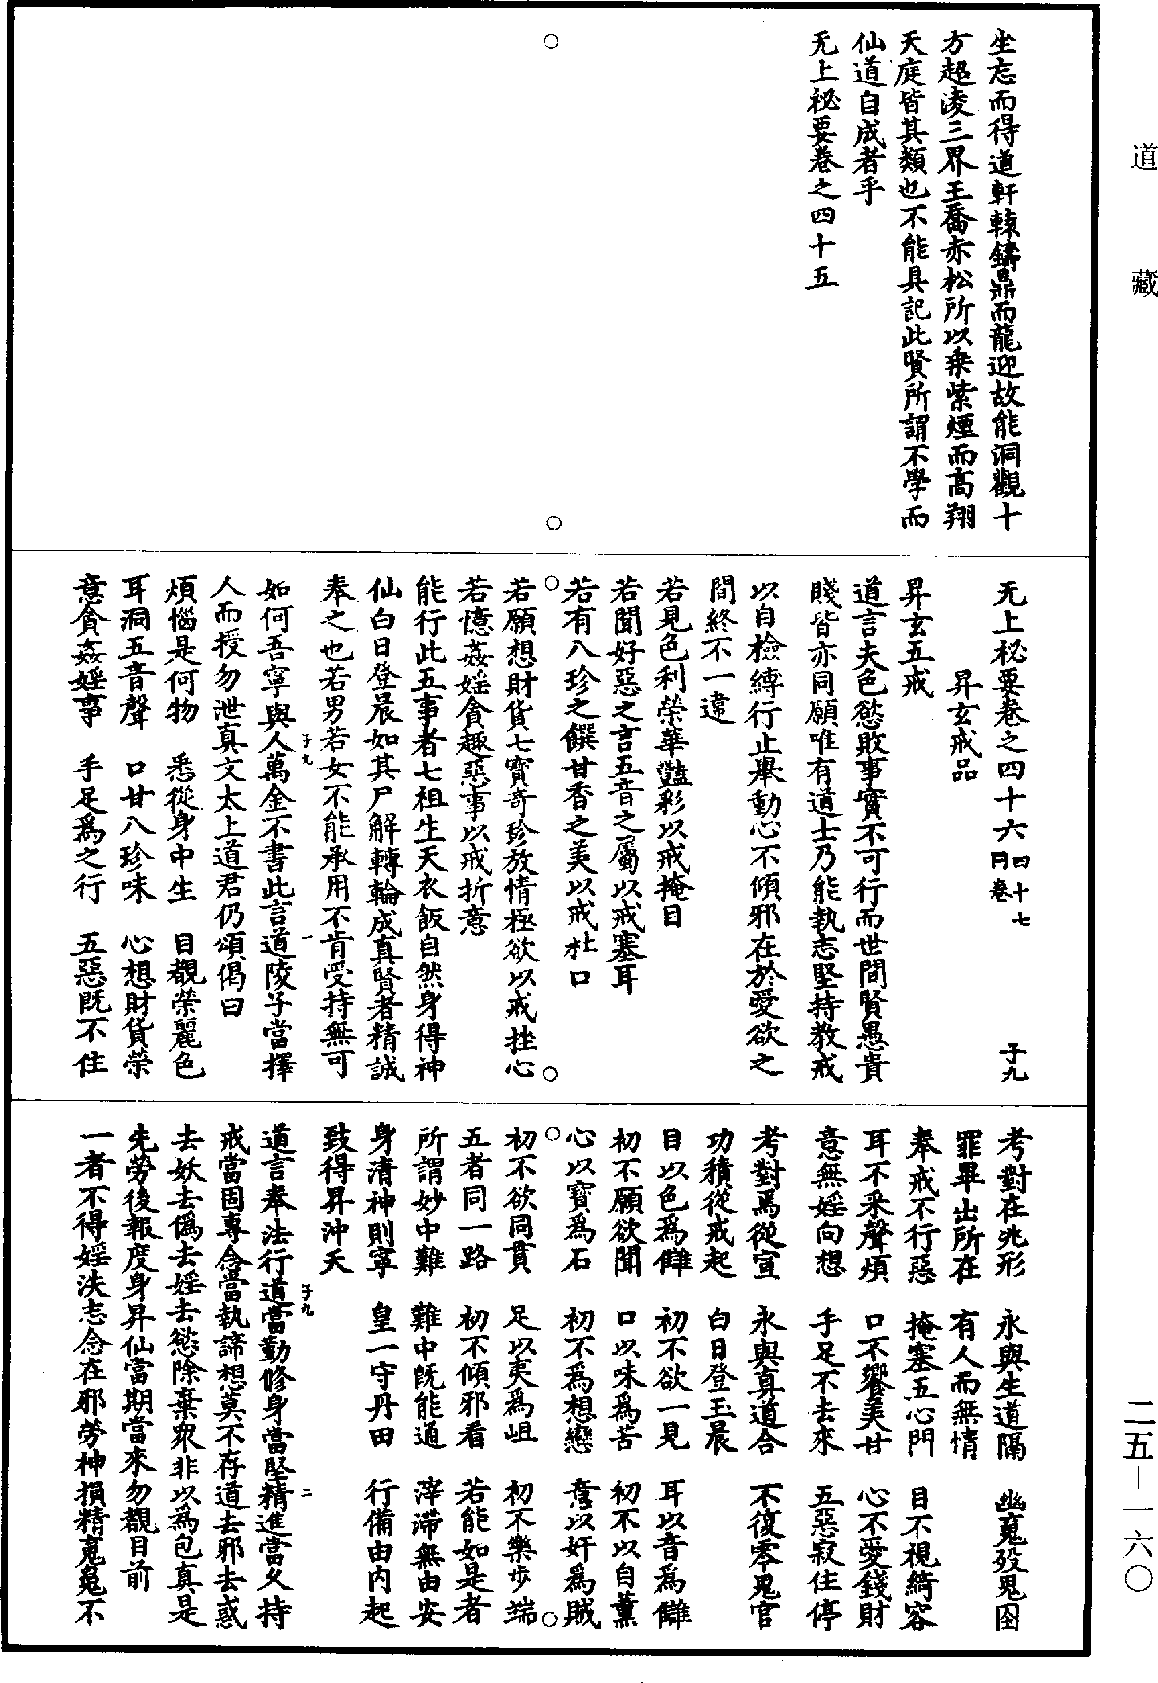 道藏
坐忘而得道軒轅鑄鼎而龍迎故能洞觀十
方超凌三界王喬赤松所以乗紫煙而高翔
天庭皆其類也不能具記此賢所謂不學而
仙道自成者乎
无上祕要卷之四十五
无上祕要卷之四十六 四十七同卷 子九
昇玄戒品
昇玄五戒
道言夫色慾敗事實不可行而世間賢愚貴
賤皆亦同願唯有道士乃能執志堅持教戒
以自檢縛行止舉動心不傾邪在於愛欲之
間終不一違
若見色利榮華豔彩以戒掩目
若聞好惡之言五音之屬以戒塞耳
若有八珍之饌甘香之美以戒杜口
若願想財貨七寶奇珍放情極欲以戒挫心
若憶姦婬貪趣惡事以戒折意
能行此五事者七祖生天衣飯自然身得神
仙白日登晨如其尸解轉輪成真賢者精誠
奉之也若男若女不能承用不肯受持無可
子九 一
如何吾寧與人萬金不書此言道陵子當擇
人而授勿泄真文太上道君仍頌偈曰
煩惱是何物 悉從身中生 目觀榮麗色
耳洞五音聲 口甘八珍味 心想財貨榮
意貪姦婬事 手足為之行 五惡既不住
考對在兆形 永與生道隔 幽䰟歿鬼囹
罪畢出所在 有人而無情
奉戒不行惡 掩塞五心門 目不視綺容
耳不釆聲煩 口不饗美甘 心不愛錢財
意無婬向想 手足不去來 五惡寂住停
考對焉從宣 永與真道合 不復零鬼官
功積從戒起 白日登玉晨
目以色為讎 初不欲一見 耳以音為讎
初不願欲聞 口以味為苦 初不以自薰
心以寶為石 初不為想戀 意以奸為賊
初不欲同貫 足以夷為岨 初不樂步端
五者同一路 初不傾邪看 若能如是者
所謂妙中難 難中既能通 滓滯無由安
身清神則寧 皇一守丹田 行備由內起
致得昇沖天
子九 二
道言奉法行道當勤修身當堅精進當久持
戒當固專念當執諦想莫不存道去邪去惑
去妖去偽去婬去慾除棄衆非以為包真是
先勞後報度身昇仙當期當來勿觀目前
一者不得婬泆志念在邪勞神損精䰟䰟不
二五—一六〇